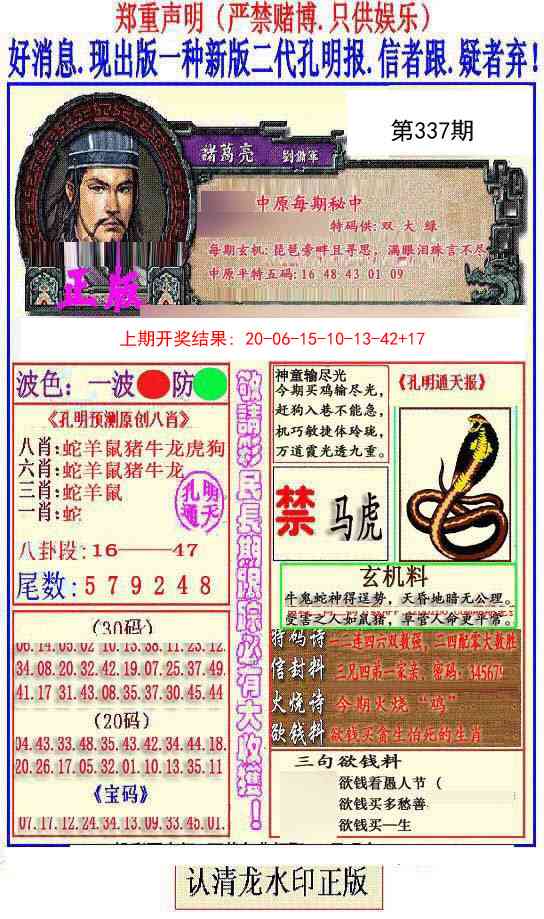 郑重声明（严禁赌博.只供娱乐）
好消息.现出版一种新版二代孔明报.信者跟.疑者弃！
第337期
諸葛亮
劉備軍
中原每期秘中
特码供:双 大 緑
每期玄机:琵琶旁畔且寻思，满眼泪珠言不尽
中原平特五码:16 48 43 01 09
正版
上期开奖结果: 20-06-15-10-13-42+17
波色：一波 防
《孔明预测原创八肖》
八肖:蛇羊鼠猪牛龙虎狗
六肖:蛇羊鼠猪牛龙
三肖:蛇羊鼠
一肖:蛇
孔明
通天
八卦段:16——47
尾数:579248
(30码)
06.14.03.02 10.13.38.11.23.12.
34.08.20.32.42.19.07.25.37.49.
41.17 31.43.08.35.37.30.45.44
(20码)
04.43.33.48.35.43.42.34.44.18.
20.26.17.05.32.01.10.13.35.11
《宝码》
07.17.12.24.34.13.09.33.45.01.
敬請彩民長期跟踪必有大收獲！
神童输尽光
今期买鸡输尽光，
赶狗入巷不能急，
机巧敏捷体玲珑，
万道霞光透九重。
《孔明通天报》
禁 马虎
玄机料
牛鬼蛇神得逞势，天昏地暗无公理。
受害之人如鼠猪，草菅人命更平常。
特码诗 一二连四六双数强，三四配零大数胜
信封料 三兄四弟一家亲，密码：345679
火烧诗 今期火烧“鸡”
欲钱料 欲钱买贪生怕死的生肖
三句欲钱料
欲钱看愚人节（
欲钱买多愁善
欲钱买一生
认清龙水印正版